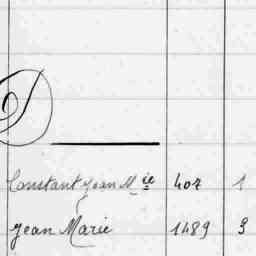 D
Constant Jean Mie 407 1
Jean Marie 1489 3